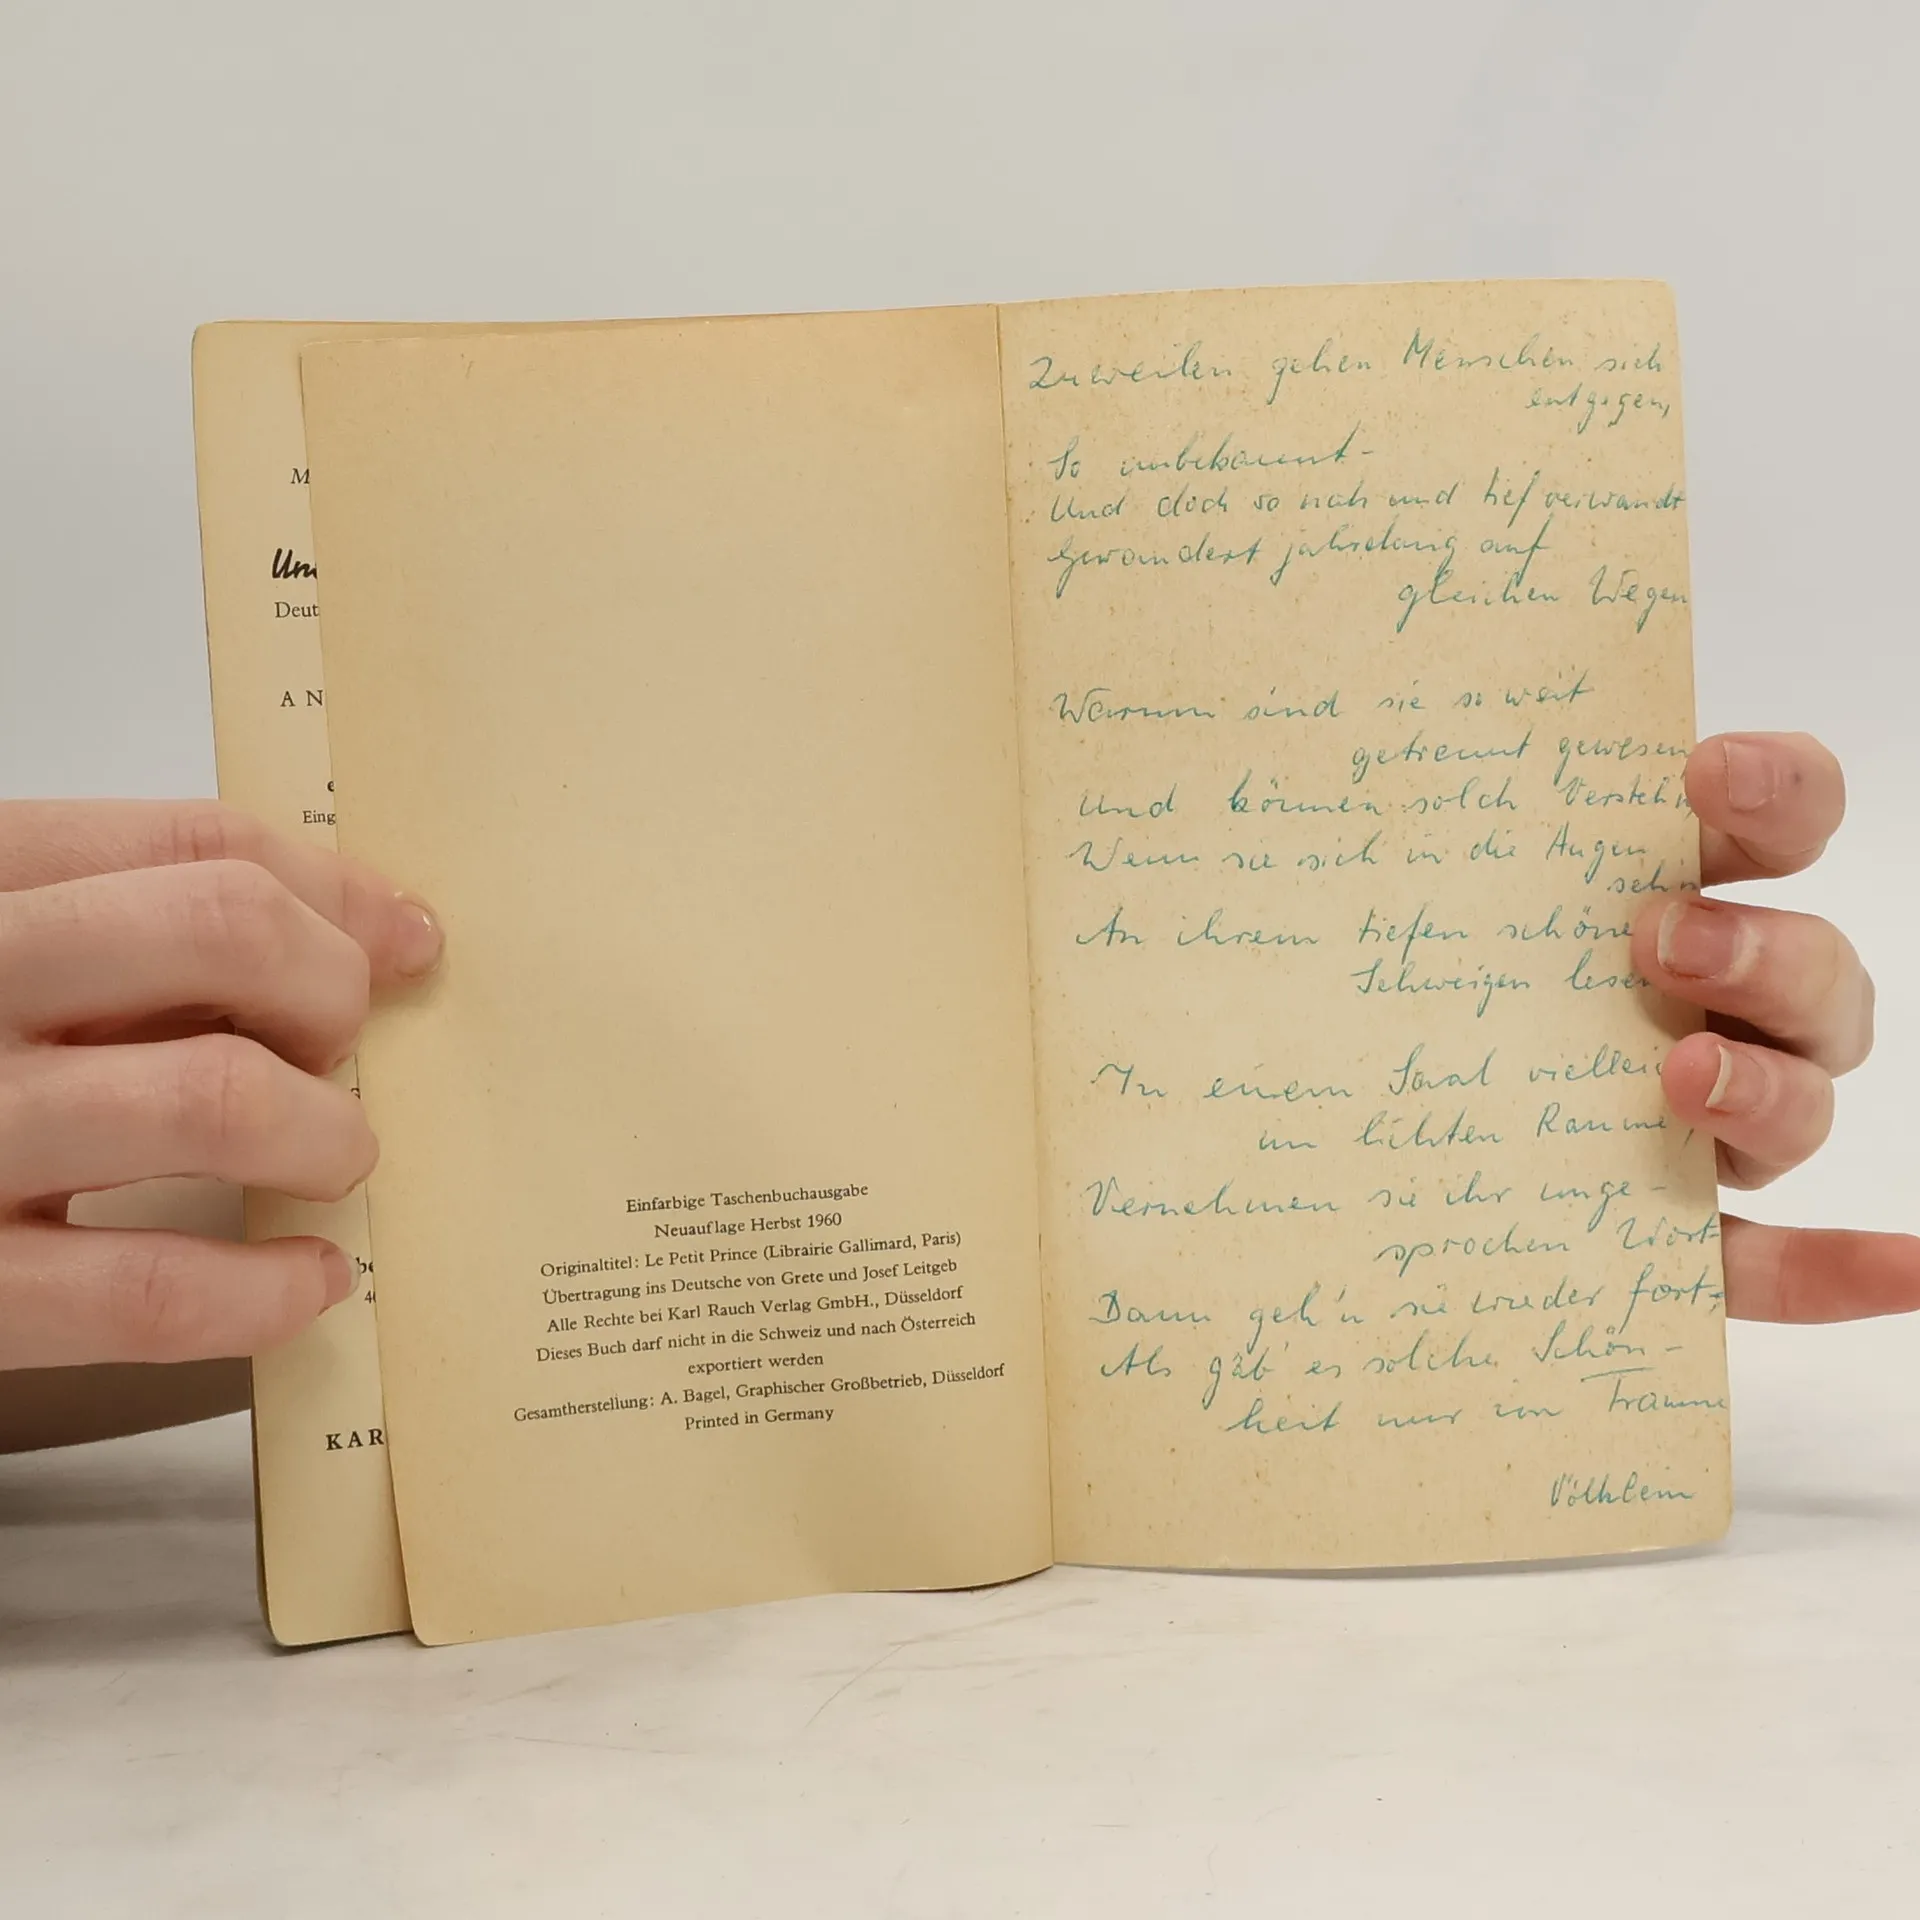 M
Um
Deut
A N
e
Eing
be
KAR
Einfarbige Taschenbuchausgabe
Neuauflage Herbst 1960
Originaltitel: Le Petit Prince (Librairie Gallimard, Paris)
Übertragung ins Deutsche von Grete und Josef Leitgeb
Alle Rechte bei Karl Rauch Verlag GmbH., Düsseldorf
Dieses Buch darf nicht in die Schweiz und nach Österreich
exportiert werden
Gesamtherstellung: A. Bagel, Graphischer Großbetrieb, Düsseldorf
Printed in Germany
Zuweilen gehen Menschen sich
entgegen,
So unbekannt-
Und doch so nah und tief verwandt
Gewandert jahrelang auf
gleichen Wegen
Warum sind sie so weit
getrennt gewesen
Und können solch Versteh'n,
Wenn sie sich in die Augen
seh'n
An ihrem tiefen schöne
Schweigen lesen
In einem Saal vielleic
im lichten Raume,
Vernehmen sie ihr unge-
sprochen Wort-
Dann geh'n sie wieder fort,
Als gäb' es solche Schön-
heit nur im Traume
Völklein